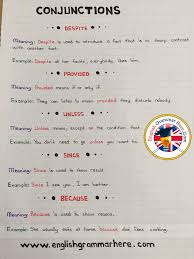 CONJUNCTIONS
DESPITE
Meaning: Despite is used to introduce a fact that is in sharp contrast
with another fact.
Example: Despite all her faults, everybody likes him.
PROVIDED
Meaning: Provided is used to mean if or only if.
Example: They can listen to music provided they disturb nobody.
UNLESS
Meaning: Unless means, except on the condition that
Example: You don't need to go unless you want to.
SINCE
Meaning: Since is used to show reason.
Example: Since I see you, I am better.
BECAUSE
Meaning: Because is used to show reason.
Example: She usually eats at home, because she likes cooking.
English Grammar Here.Com
www.englishgrammarhere.com